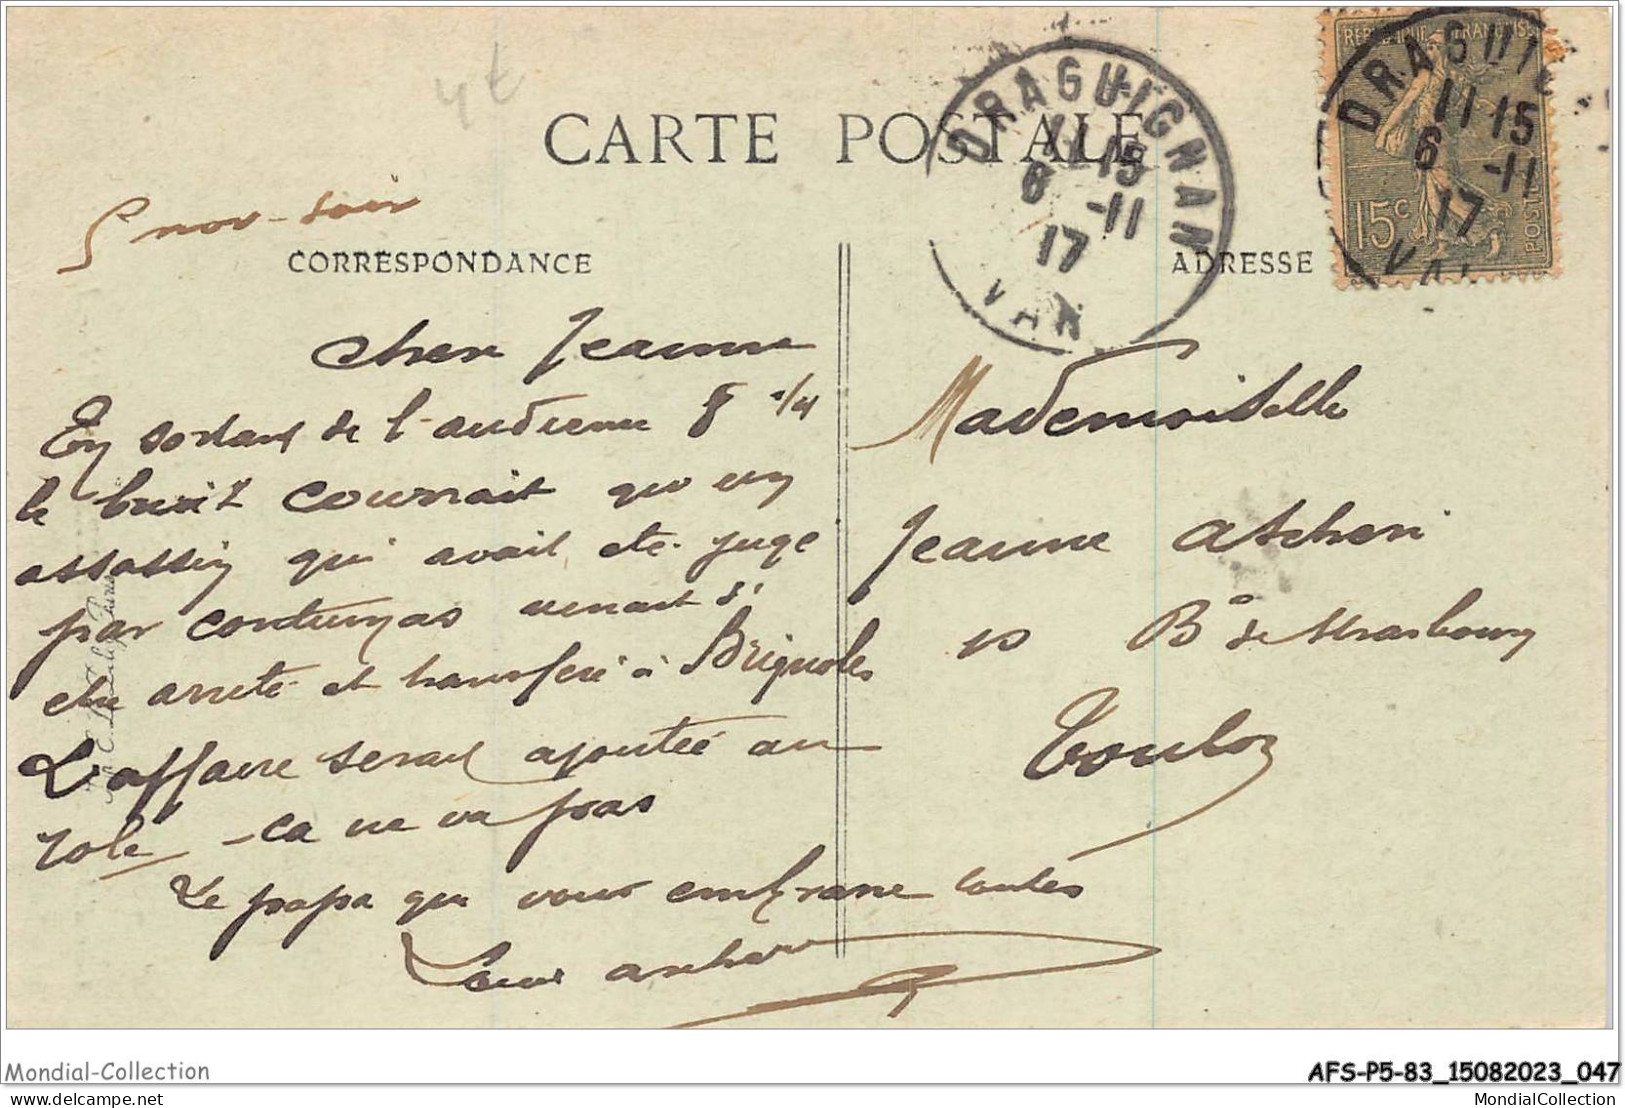 CARTE POSTALE
DRAGUIGNAN
11 15
6 -11
17
VAR
REPUBLIQUE FRANCAISE
DRAGUI
11 15
6 -11
17
VAR
15c
POSTES
5 nov - soir
CORRESPONDANCE
ADRESSE
Chere Jeanne
En sortant de l'audience 8 1/4
le bruit courrait qu'un
assassin qui avait ete juge
par contumas venait d'
etre arrete et transfere à Brignoles
L'affaire serait ajoutée au
role - ca ne va pas
Le papa qui vous embrasse toutes
Mademoiselle
Jeanne Ascheri
10 Bd de Strasbourg
Toulon
Mondial-Collection
AFS-P5-83_15082023_047
Mondial-Collection.net
MondialCollection